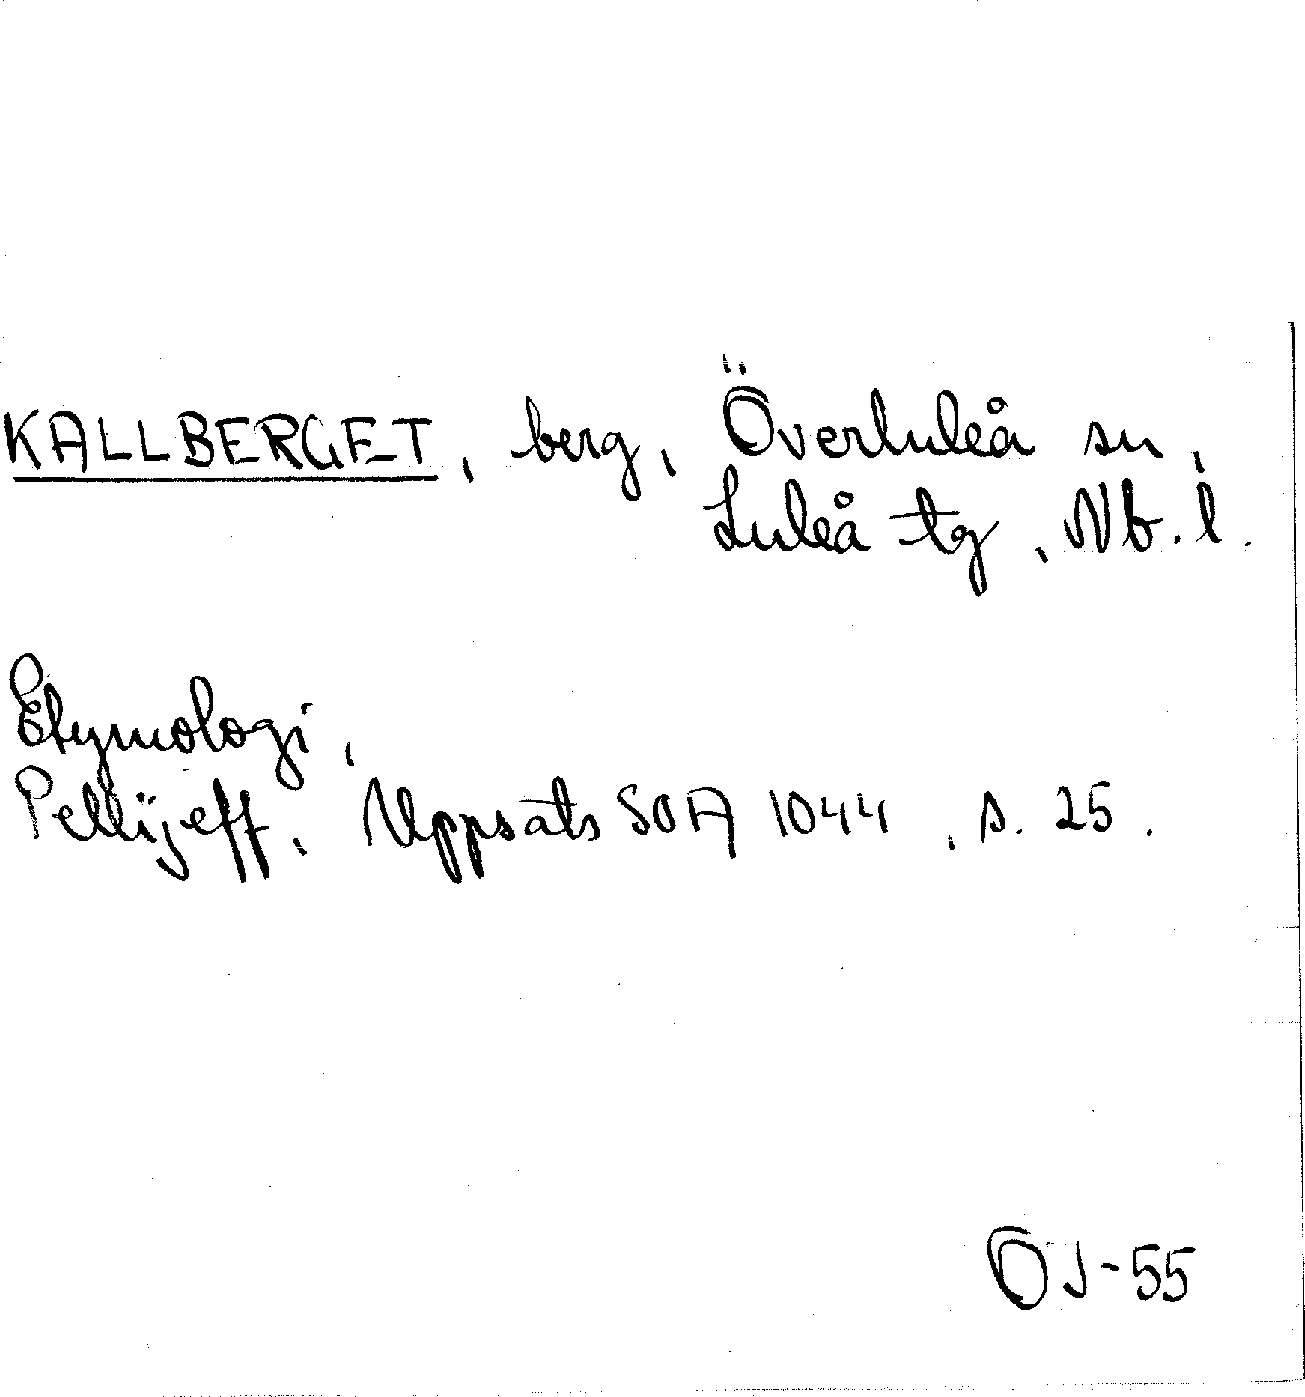 KALLBERGET, berg, Överluleå sn,
Luleå tg, Nb. l.
Etymologi,
Pellijeff, Uppsats SOA 1044, s. 25.
OJ-55